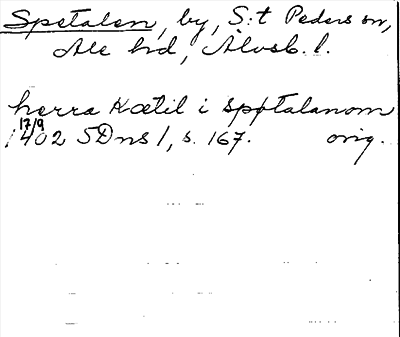 Spetalen, by, S:t Peders sn,
Ale hd, Älvsb. l.
herra Kætil i spptalanom
17/9
1402 SDns 1, s. 167. orig.